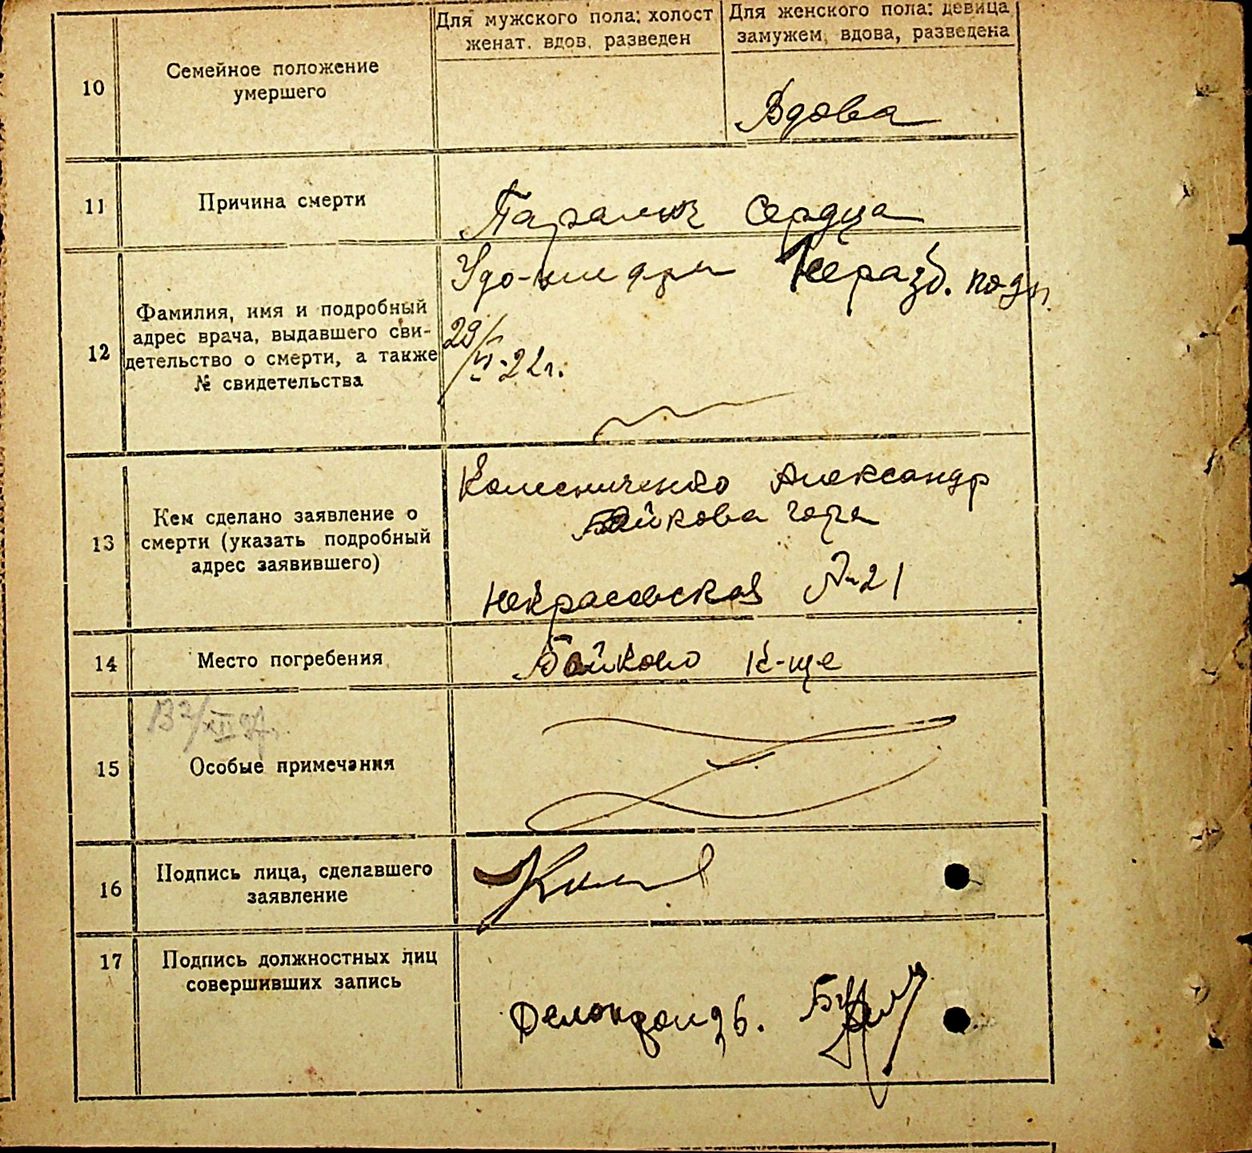 Для мужского пола: холост
женат. вдов. разведен
Для женского пола: девица
замужем, вдова, разведена
10
Семейное положение
умершего
Вдова
11
Причина смерти
Паралич сердца
12
Фамилия, имя и подробный
адрес врача, выдавшего сви-
детельство о смерти, а также
№ свидетельства
Удо-ние Неразб. подп.
29/VI-22г.
13
Кем сделано заявление о
смерти (указать подробный
адрес заявившего)
Колесниченко Александр
Байкова гора
Некрасовская №21
14
Место погребения
Байково к-ще
15
Особые примечания
16
Подпись лица, сделавшего
заявление
17
Подпись должностных лиц
совершивших запись
Делопроизв.